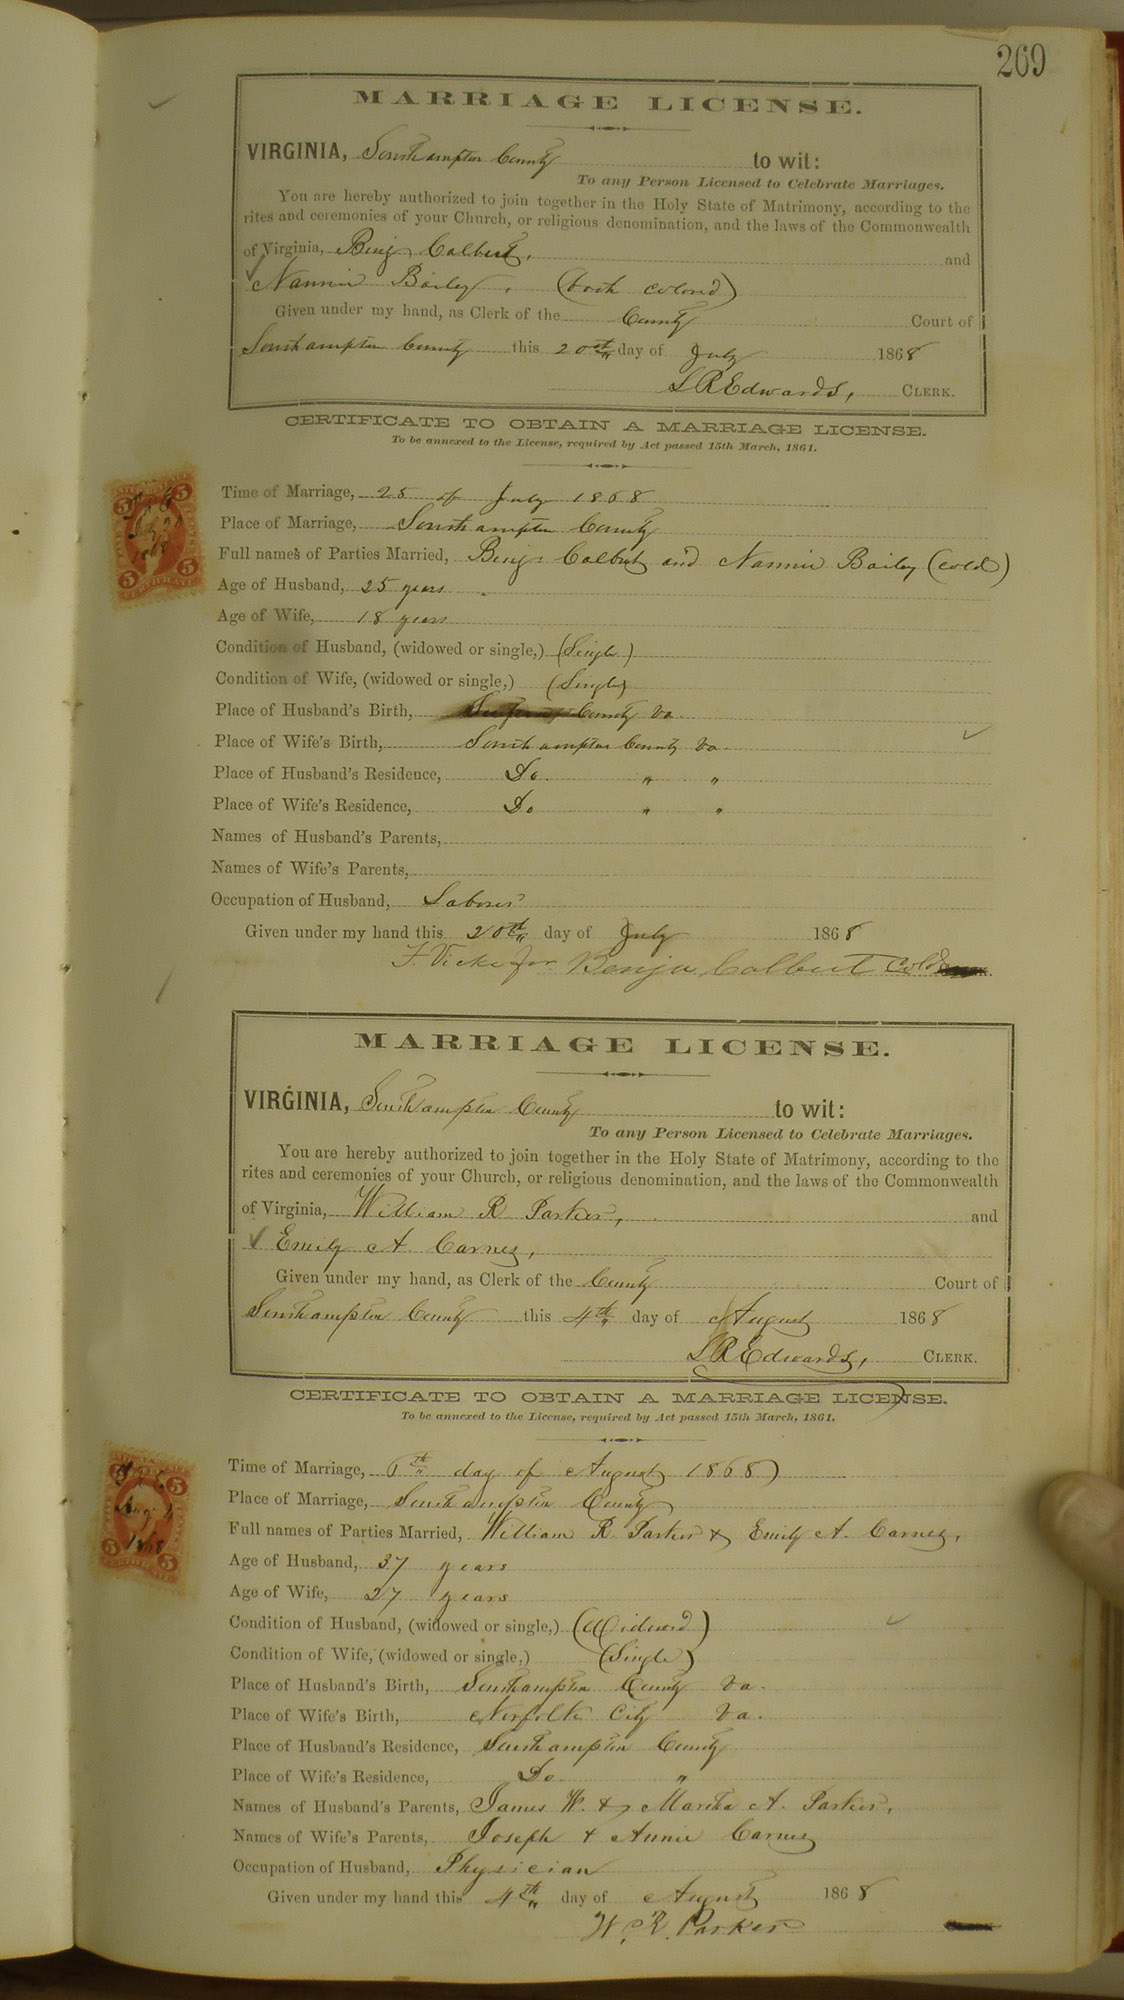 269
MARRIAGE LICENSE.
VIRGINIA, Southampton County to wit:
To any Person Licensed to Celebrate Marriages.
You are hereby authorized to join together in the Holy State of Matrimony, according to the
rites and ceremonies of your Church, or religious denomination, and the laws of the Commonwealth
of Virginia, Benj Colbert, and
Nannie Bailey, (both colored)
Given under my hand, as Clerk of the County Court of
Southampton County this 20th day of July 1868
L R Edwards, CLERK.
CERTIFICATE TO OBTAIN A MARRIAGE LICENSE.
To be annexed to the License, required by Act passed 15th March, 1861.
Time of Marriage, 25 of July 1868
Place of Marriage, Southampton County
Full names of Parties Married, Benj Colbert and Nannie Bailey (cold)
Age of Husband, 25 years
Age of Wife, 18 years
Condition of Husband, (widowed or single,) (Single)
Condition of Wife, (widowed or single,) (Single)
Place of Husband's Birth, County Va.
Place of Wife's Birth, Southampton County Va.
Place of Husband's Residence, Do. " "
Place of Wife's Residence, Do " "
Names of Husband's Parents,
Names of Wife's Parents,
Occupation of Husband, Laborer
Given under my hand this 20th day of July 1868
for Benja Colbert Cold
5 5
5 5
CERTIFICATE
1868
MARRIAGE LICENSE.
VIRGINIA, Southampton County to wit:
To any Person Licensed to Celebrate Marriages.
You are hereby authorized to join together in the Holy State of Matrimony, according to the
rites and ceremonies of your Church, or religious denomination, and the laws of the Commonwealth
of Virginia, William R Parker, and
Emily A. Carney,
Given under my hand, as Clerk of the County Court of
Southampton County this 4th day of August 1868
L R Edwards, CLERK.
CERTIFICATE TO OBTAIN A MARRIAGE LICENSE.
To be annexed to the License, required by Act passed 15th March, 1861.
Time of Marriage, 6th day of August 1868
Place of Marriage, Southampton County
Full names of Parties Married, William R. Parker & Emily A. Carney,
Age of Husband, 37 years
Age of Wife, 27 years
Condition of Husband, (widowed or single,) (Widowed)
Condition of Wife, (widowed or single,) (Single)
Place of Husband's Birth, Southampton County Va.
Place of Wife's Birth, Norfolk City Va.
Place of Husband's Residence, Southampton County
Place of Wife's Residence, Do. "
Names of Husband's Parents, James W. & Martha A. Parker,
Names of Wife's Parents, Joseph & Annie Carney
Occupation of Husband, Physician
Given under my hand this 4th day of August 1868
W. R. Parker
5 5
Aug 4
1868
5 5
CERTIFICATE